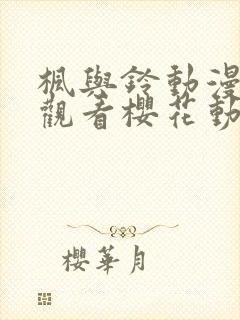 楓與鈴動漫
觀看櫻花動
櫻華月